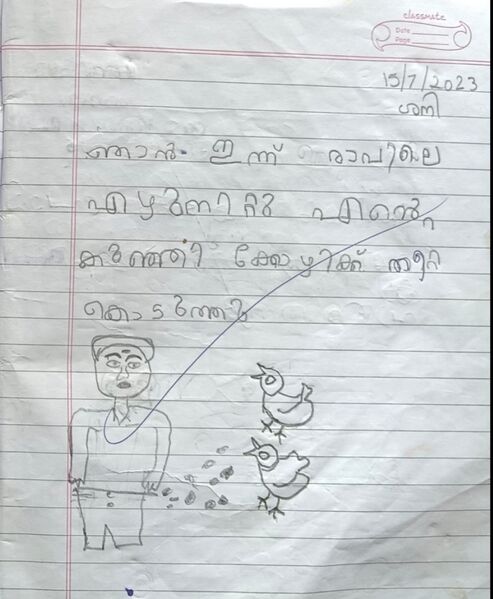 classmate
Date
Page
15/7/2023
ശനി
ഞാൻ ഇന്ന് രാവിലെ
എഴുനേറ്റു എന്റെ
കുഞ്ഞി കോഴിക്ക് തീറ്റ
കൊടുത്തു